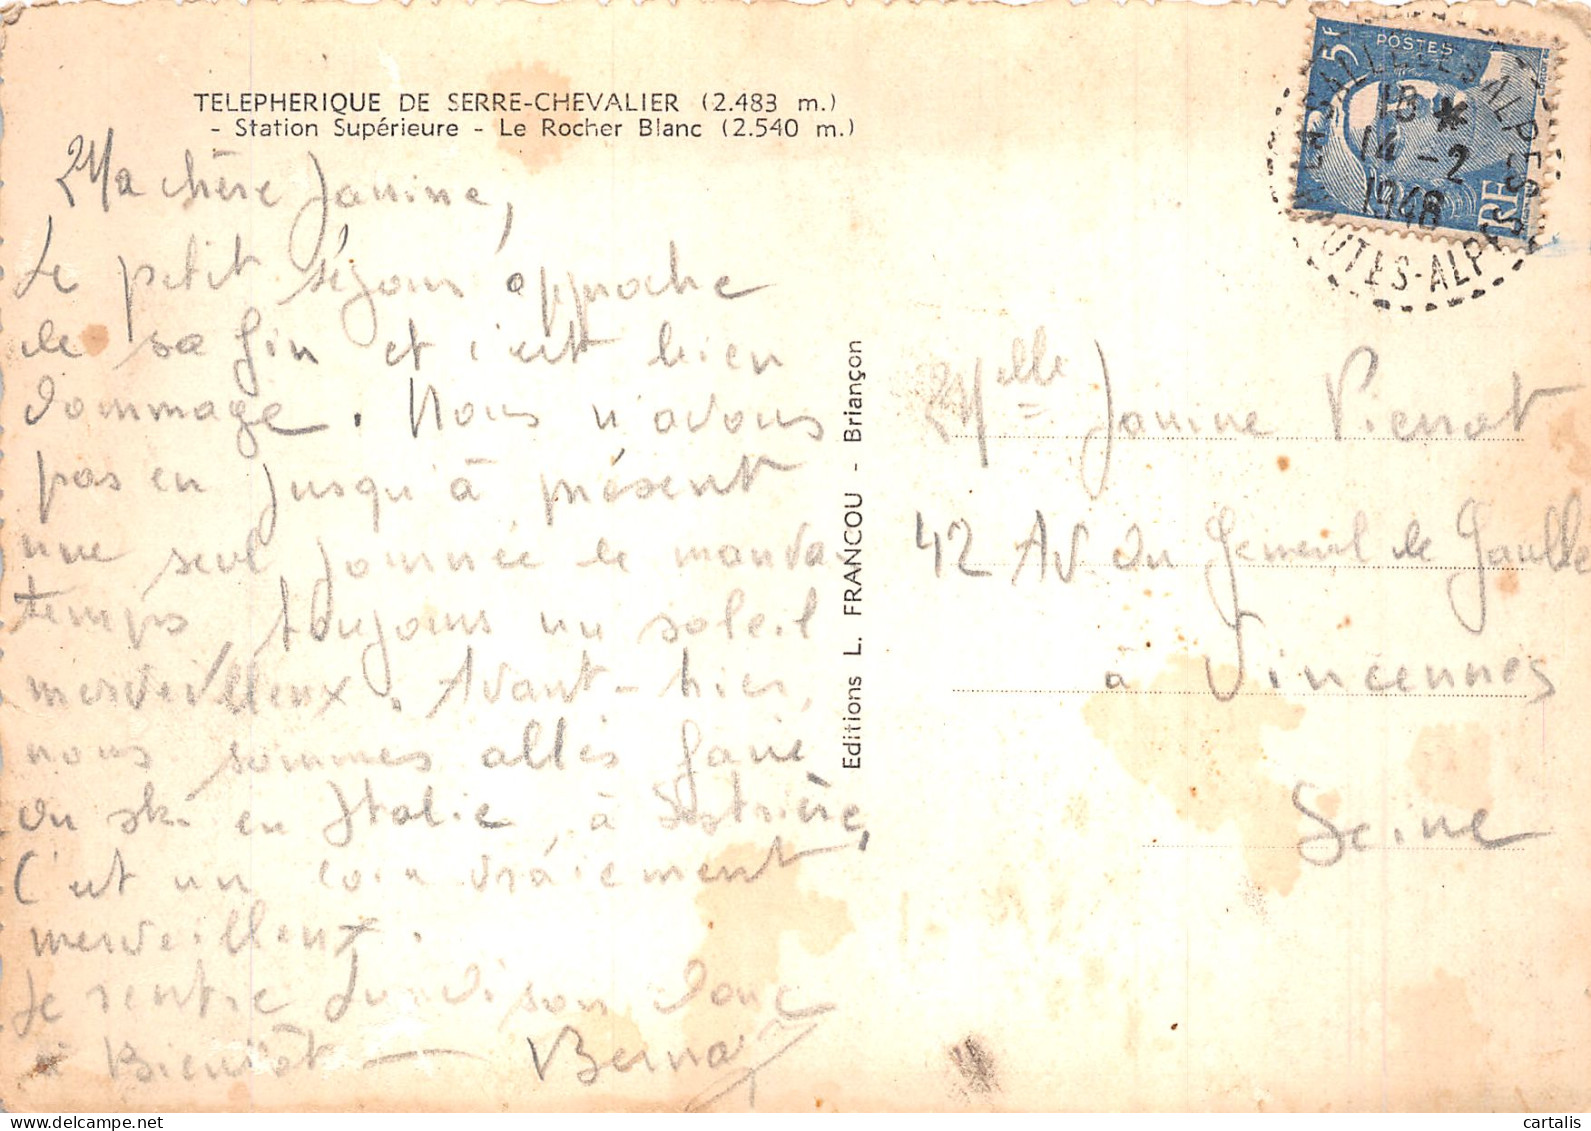 TELEPHERIQUE DE SERRE-CHEVALIER (2.483 m.)
- Station Supérieure - Le Rocher Blanc (2.540 m.)
Ma chère Janine,
Le petit séjour approche
de sa fin et c'est bien
dommage. Nous n'avons
pas eu jusqu'à présent
une seul journée de mauvais
temps, toujours un soleil
merveilleux. Avant-hier,
nous sommes allés faire
du ski en Italie, à Sestrière,
C'est un coin vraiement
merveilleux.
Je rentre lundi soir donc
à Bientôt — Bernard
Editions L. FRANCOU - Briançon
POSTES
5f
RF
18 *
14 -2
1948
HAUTES-ALPES
Melle Janine Pierrot
42 Av. du General de Gaulle
à Vincennes
Seine
cartalis